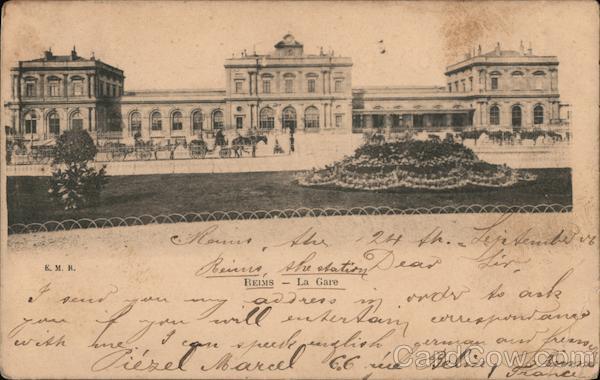 Reims, the 24 th. September 06
Reims, the station Dear Sir
E. M. R.
REIMS — La Gare
I send you my address in order to ask
you if you will entertain correspondance
with me. I can speak english german and french
Piézel Marcel 66 rue Reims
France
CardCow.com